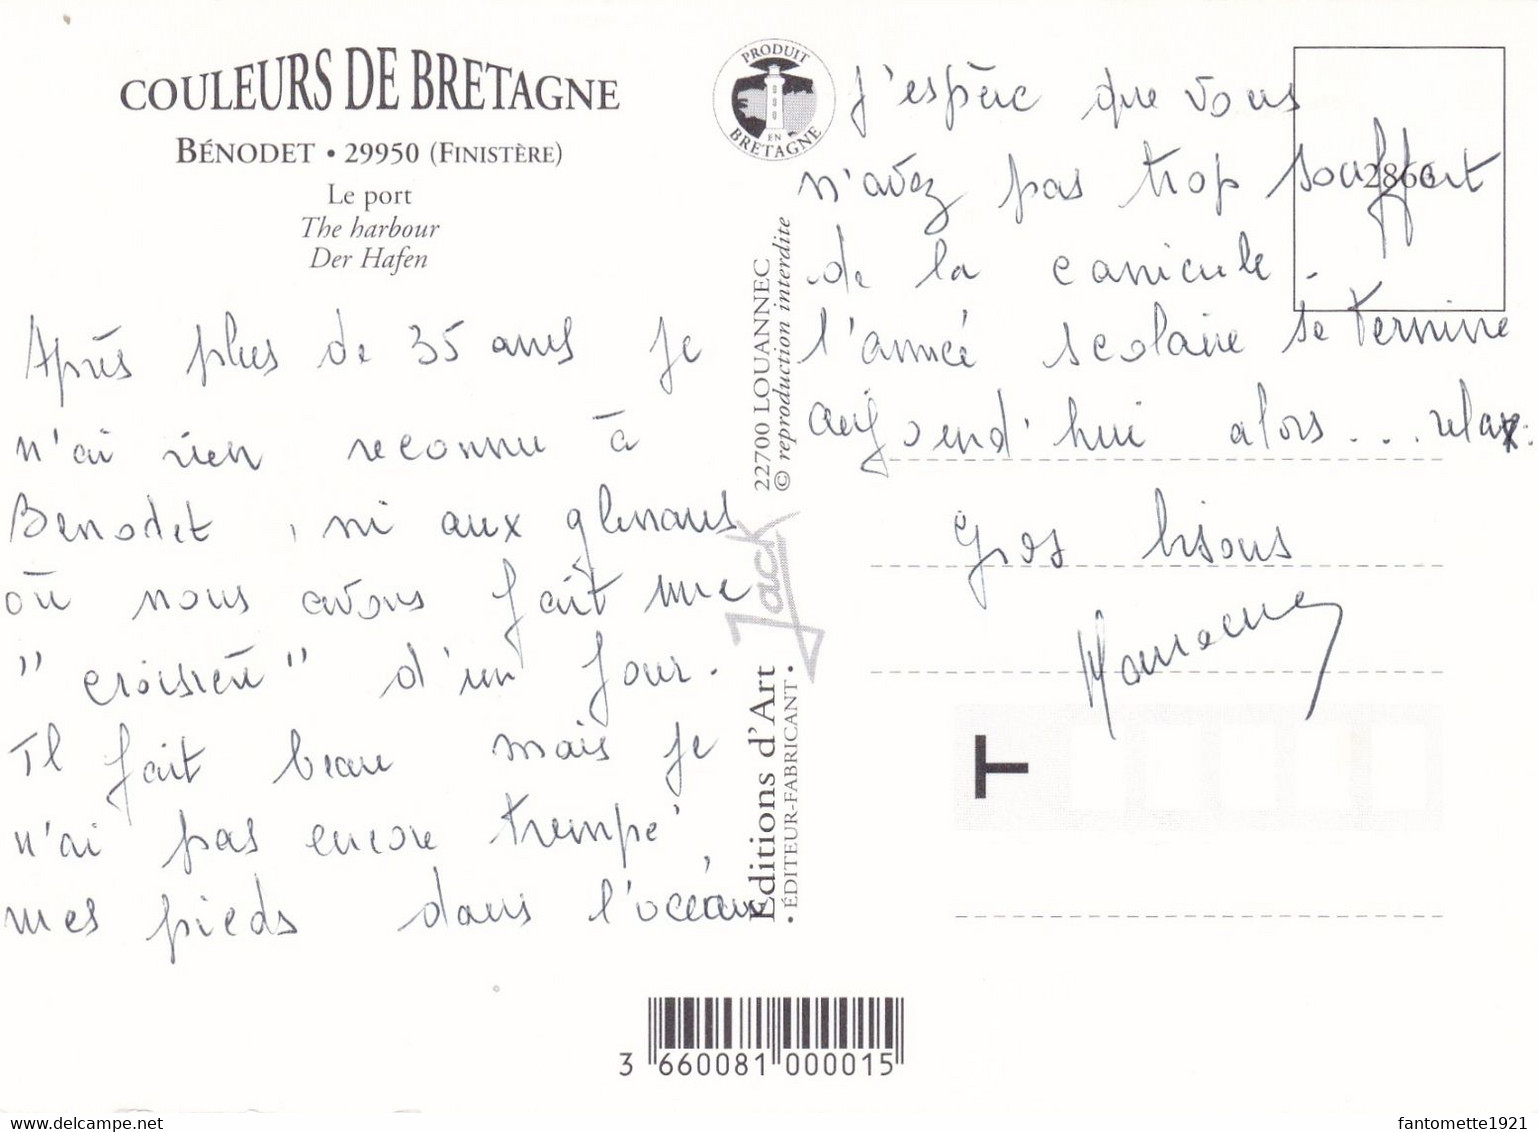 COULEURS DE BRETAGNE
BÉNODET • 29950 (FINISTÈRE)
Le port
The harbour
Der Hafen
Après plus de 35 ans je
n'ai rien reconnu à
Benodet, ni aux glenans
où nous avons fait une
"croisière" d'un jour.
Il fait beau mais je
n'ai pas encore trempé
mes pieds dans l'océan
PRODUIT
EN
BRETAGNE
22700 LOUANNEC
© reproduction interdite
Jack
Editions d'Art
• ÉDITEUR-FABRICANT •
J'espère que vous
n'avez pas trop souffert
de la canicule.
l'année scolaire se termine
aujourd'hui alors... relax.
Gros bisous
T
3 660081 000015
fantomette1921